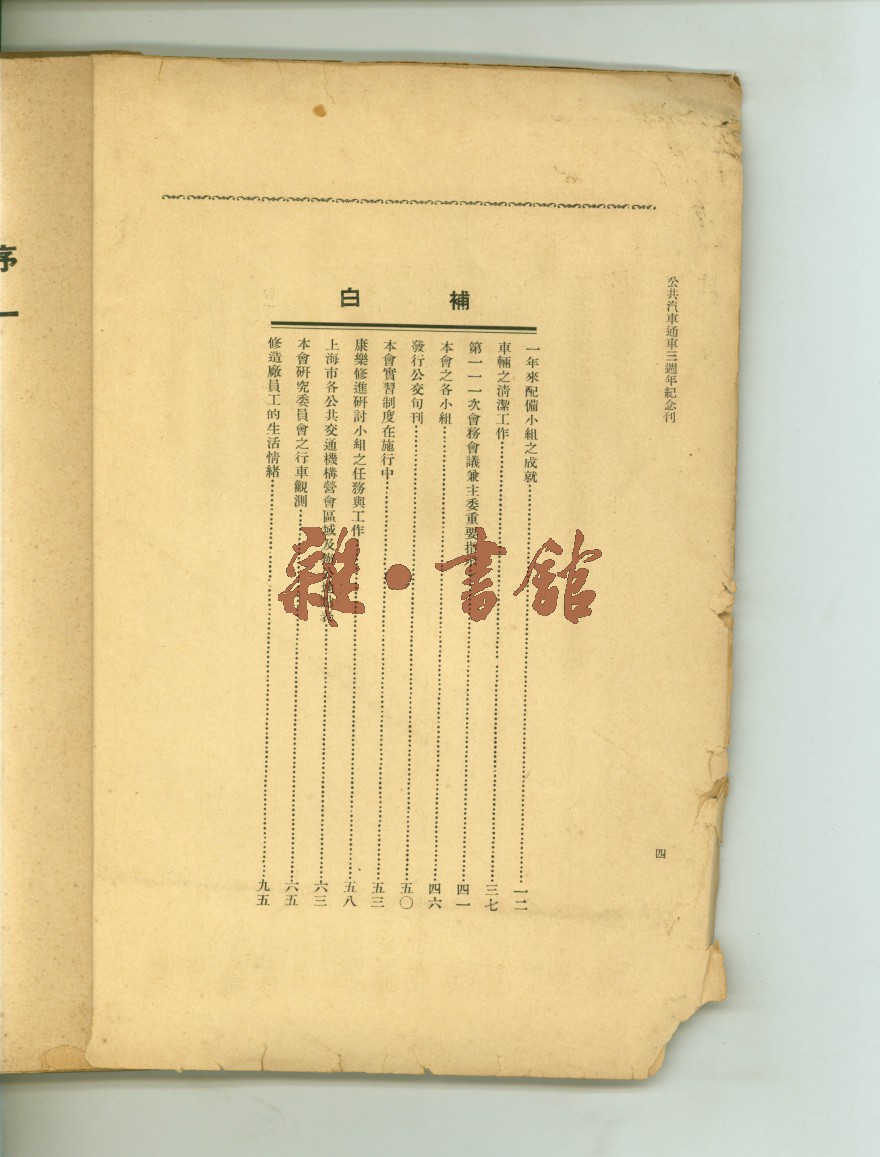 公共汽車通車三週年紀念刊
四
補白
一年來配備小組之成就 一二
車輛之清潔工作 三七
第一一一次會務會議兼主委重要指 四一
本會之各小組 四六
發行公交旬刊 五〇
本會實習制度在施行中 五三
康樂修進研討小組之任務與工作 五八
上海市各公共交通機構營會區域及辦公 六三
本會研究委員會之行車觀測 六五
修造廠員工的生活情緒 九五
雜·書館
序一